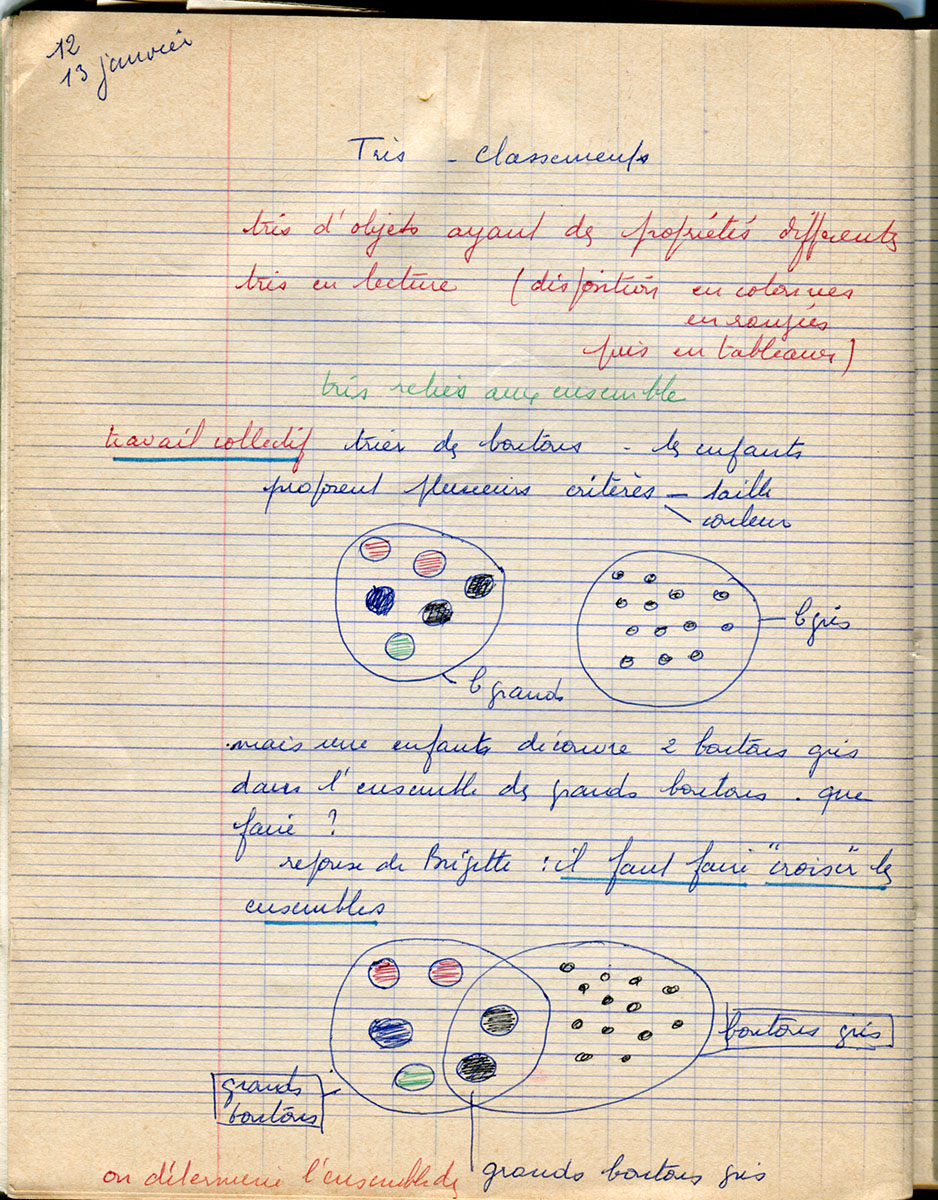 12
13 janvier
Tris - classements
tris d'objets ayant des propriétés différentes
tris en lecture (disposition en colonnes
en rangées
puis en tableaux)
tris reliés aux ensemble
travail collectif trier des boutons - les enfants
proposent plusieurs critères - taille
couleur
b gris
b grands
mais une enfants découvre 2 boutons gris
dans l'ensemble des grands boutons. que
faire ?
reponse de Brigitte : il faut faire "croiser" les
ensembles
boutons gris
grands
boutons
on détermine l'ensemble des grands boutons gris